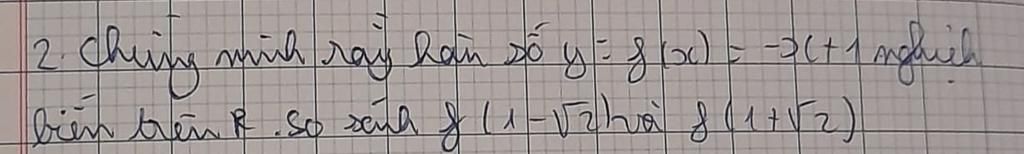 2. Chứng minh rằng hàm số y = f(x) = -x + 1 nghịch
biến trên R. So sánh f(1-√2) và f(1+√2)